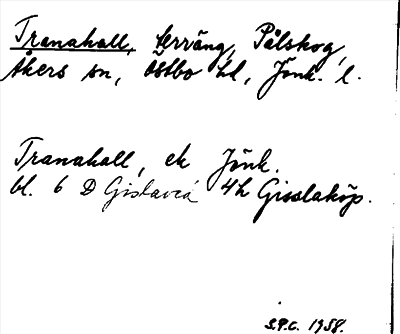 Tranahall, terräng, Pålskog,
Åkers sn, Östbo hd, Jönk. l.
Tranahall, ek Jönk.
bl. 6 D Gislaved 4h Gisslaköp.
S.P.C. 1958.